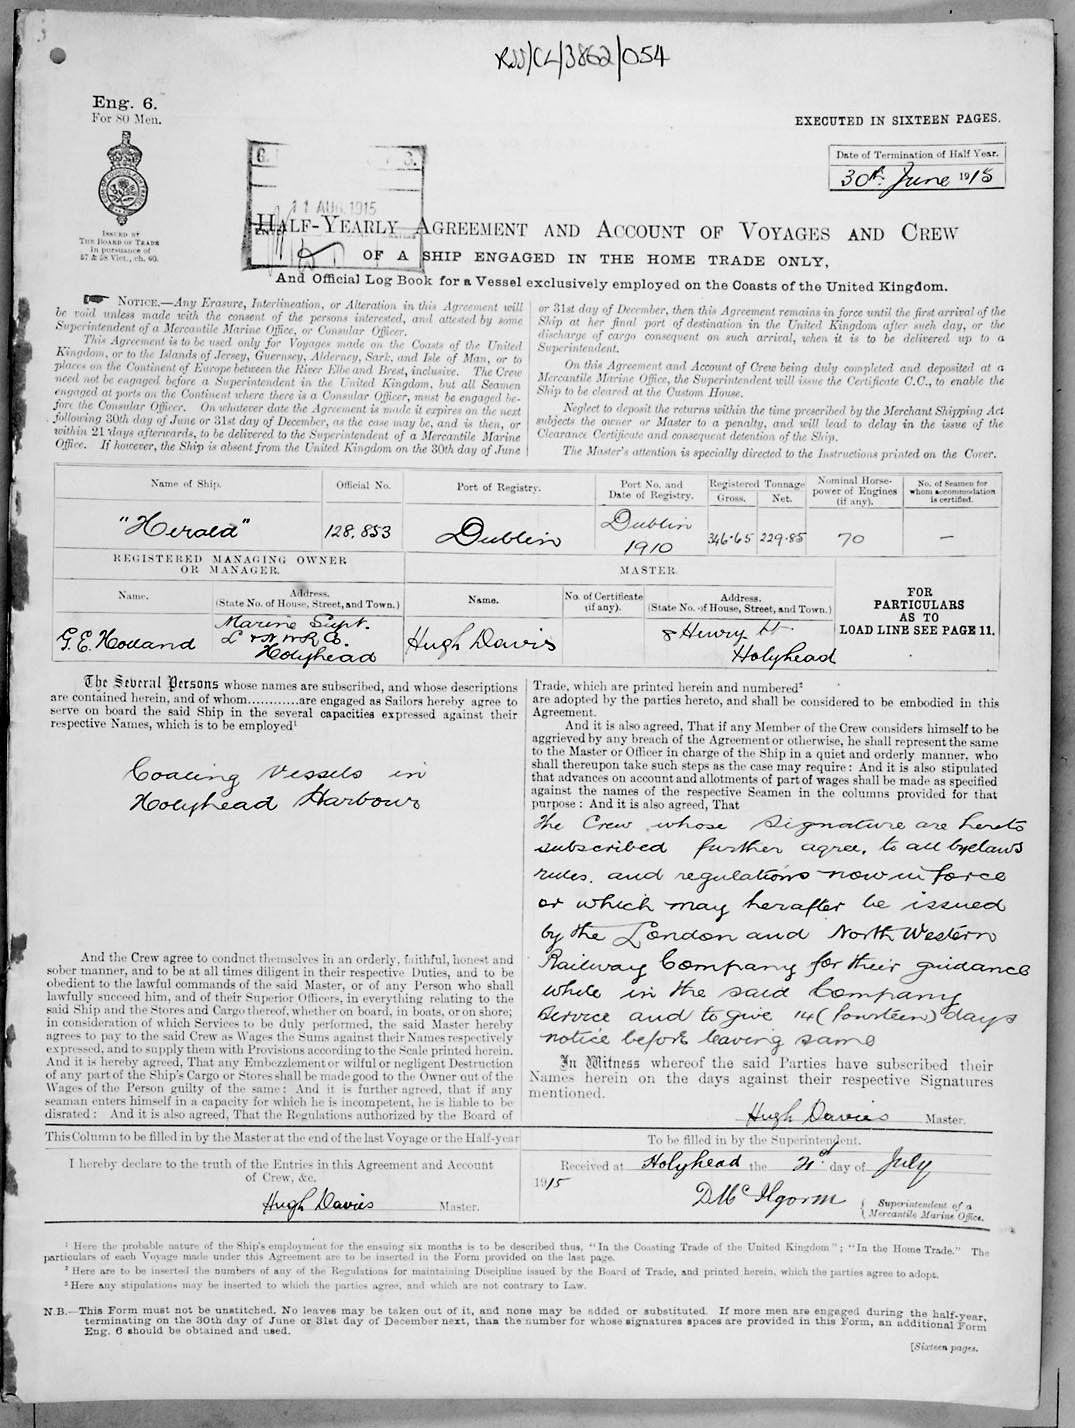 RSS/CL/3862/054
Eng. 6.
For 80 Men.
EXECUTED IN SIXTEEN PAGES.
Date of Termination of Half Year.
30th June 1915
ISSUED BY
THE BOARD OF TRADE
in pursuance of
57 & 58 Vict., ch. 60.
11 AUG 1915
HALF-YEARLY AGREEMENT AND ACCOUNT OF VOYAGES AND CREW
OF A SHIP ENGAGED IN THE HOME TRADE ONLY,
And Official Log Book for a Vessel exclusively employed on the Coasts of the United Kingdom.
NOTICE.—Any Erasure, Interlineation, or Alteration in this Agreement will
be void unless made with the consent of the persons interested, and attested by some
Superintendent of a Mercantile Marine Office, or Consular Officer.
This Agreement is to be used only for Voyages made on the Coasts of the United
Kingdom, or to the Islands of Jersey, Guernsey, Alderney, Sark, and Isle of Man, or to
places on the Continent of Europe between the River Elbe and Brest, inclusive. The Crew
need not be engaged before a Superintendent in the United Kingdom, but all Seamen
engaged at ports on the Continent where there is a Consular Officer, must be engaged be-
fore the Consular Officer. On whatever date the Agreement is made it expires on the next
following 30th day of June or 31st day of December, as the case may be, and is then, or
within 21 days afterwards, to be delivered to the Superintendent of a Mercantile Marine
Office. If however, the Ship is absent from the United Kingdom on the 30th day of June
or 31st day of December, then this Agreement remains in force until the first arrival of the
Ship at her final port of destination in the United Kingdom after such day, or the
discharge of cargo consequent on such arrival, when it is to be delivered up to a
Superintendent.
On this Agreement and Account of Crew being duly completed and deposited at a
Mercantile Marine Office, the Superintendent will issue the Certificate C.C., to enable the
Ship to be cleared at the Custom House.
Neglect to deposit the returns within the time prescribed by the Merchant Shipping Act
subjects the owner or Master to a penalty, and will lead to delay in the issue of the
Clearance Certificate and consequent detention of the Ship.
The Master's attention is specially directed to the Instructions printed on the Cover.
Name of Ship. Official No. Port of Registry. Port No. and Date of Registry. Registered Tonnage Gross. Net. Nominal Horse-power of Engines (if any). No. of Seamen for whom accommodation is certified.
"Herald" 128,853 Dublin Dublin 1910 346.65 229.85 70 —
REGISTERED MANAGING OWNER
OR MANAGER.
MASTER.
Name. Address. (State No. of House, Street, and Town.) Name. No. of Certificate (if any). Address. (State No. of House, Street, and Town.)
FOR
PARTICULARS
AS TO
LOAD LINE SEE PAGE 11.
G. E. Holland Marine Supt. L & N W R Co. Holyhead Hugh Davis 8 Henry St. Holyhead
The Several Persons whose names are subscribed, and whose descriptions
are contained herein, and of whom............are engaged as Sailors hereby agree to
serve on board the said Ship in the several capacities expressed against their
respective Names, which is to be employed¹
Coaling Vessels in
Holyhead Harbour
And the Crew agree to conduct themselves in an orderly, faithful, honest and
sober manner, and to be at all times diligent in their respective Duties, and to be
obedient to the lawful commands of the said Master, or of any Person who shall
lawfully succeed him, and of their Superior Officers, in everything relating to the
said Ship and the Stores and Cargo thereof, whether on board, in boats, or on shore;
in consideration of which Services to be duly performed, the said Master hereby
agrees to pay to the said Crew as Wages the Sums against their Names respectively
expressed, and to supply them with Provisions according to the Scale printed herein.
And it is hereby agreed, That any Embezzlement or wilful or negligent Destruction
of any part of the Ship's Cargo or Stores shall be made good to the Owner out of the
Wages of the Person guilty of the same: And it is further agreed, that if any
seaman enters himself in a capacity for which he is incompetent, he is liable to be
disrated: And it is also agreed, That the Regulations authorized by the Board of
Trade, which are printed herein and numbered²
are adopted by the parties hereto, and shall be considered to be embodied in this
Agreement.
And it is also agreed, That if any Member of the Crew considers himself to be
aggrieved by any breach of the Agreement or otherwise, he shall represent the same
to the Master or Officer in charge of the Ship in a quiet and orderly manner, who
shall thereupon take such steps as the case may require: And it is also stipulated
that advances on account and allotments of part of wages shall be made as specified
against the names of the respective Seamen in the columns provided for that
purpose: And it is also agreed, That
the Crew whose signature are hereto
subscribed further agree, to all byelaws
rules, and regulations now in force
or which may herafter be issued
by the London and North Western
Railway Company for their guidance
while in the said Company
service and to give 14 (fourteen) days
notice before leaving same
In Witness whereof the said Parties have subscribed their
Names herein on the days against their respective Signatures
mentioned.
Hugh Davies Master.
This Column to be filled in by the Master at the end of the last Voyage or the Half-year
I hereby declare to the truth of the Entries in this Agreement and Account
of Crew, &c.
Hugh Davies Master.
To be filled in by the Superintendent.
Received at Holyhead the 21st day of July
1915
D Mc Ilgorm
Superintendent of a
Mercantile Marine Office.
¹ Here the probable nature of the Ship's employment for the ensuing six months is to be described thus, "In the Coasting Trade of the United Kingdom"; "In the Home Trade." The
particulars of each Voyage made under this Agreement are to be inserted in the Form provided on the last page.
² Here are to be inserted the numbers of any of the Regulations for maintaining Discipline issued by the Board of Trade, and printed herein, which the parties agree to adopt.
³ Here any stipulations may be inserted to which the parties agree, and which are not contrary to Law.
N.B.—This Form must not be unstitched. No leaves may be taken out of it, and none may be added or substituted. If more men are engaged during the half-year,
terminating on the 30th day of June or 31st day of December next, than the number for whose signatures spaces are provided in this Form, an additional Form
Eng. 6 should be obtained and used.
[Sixteen pages.